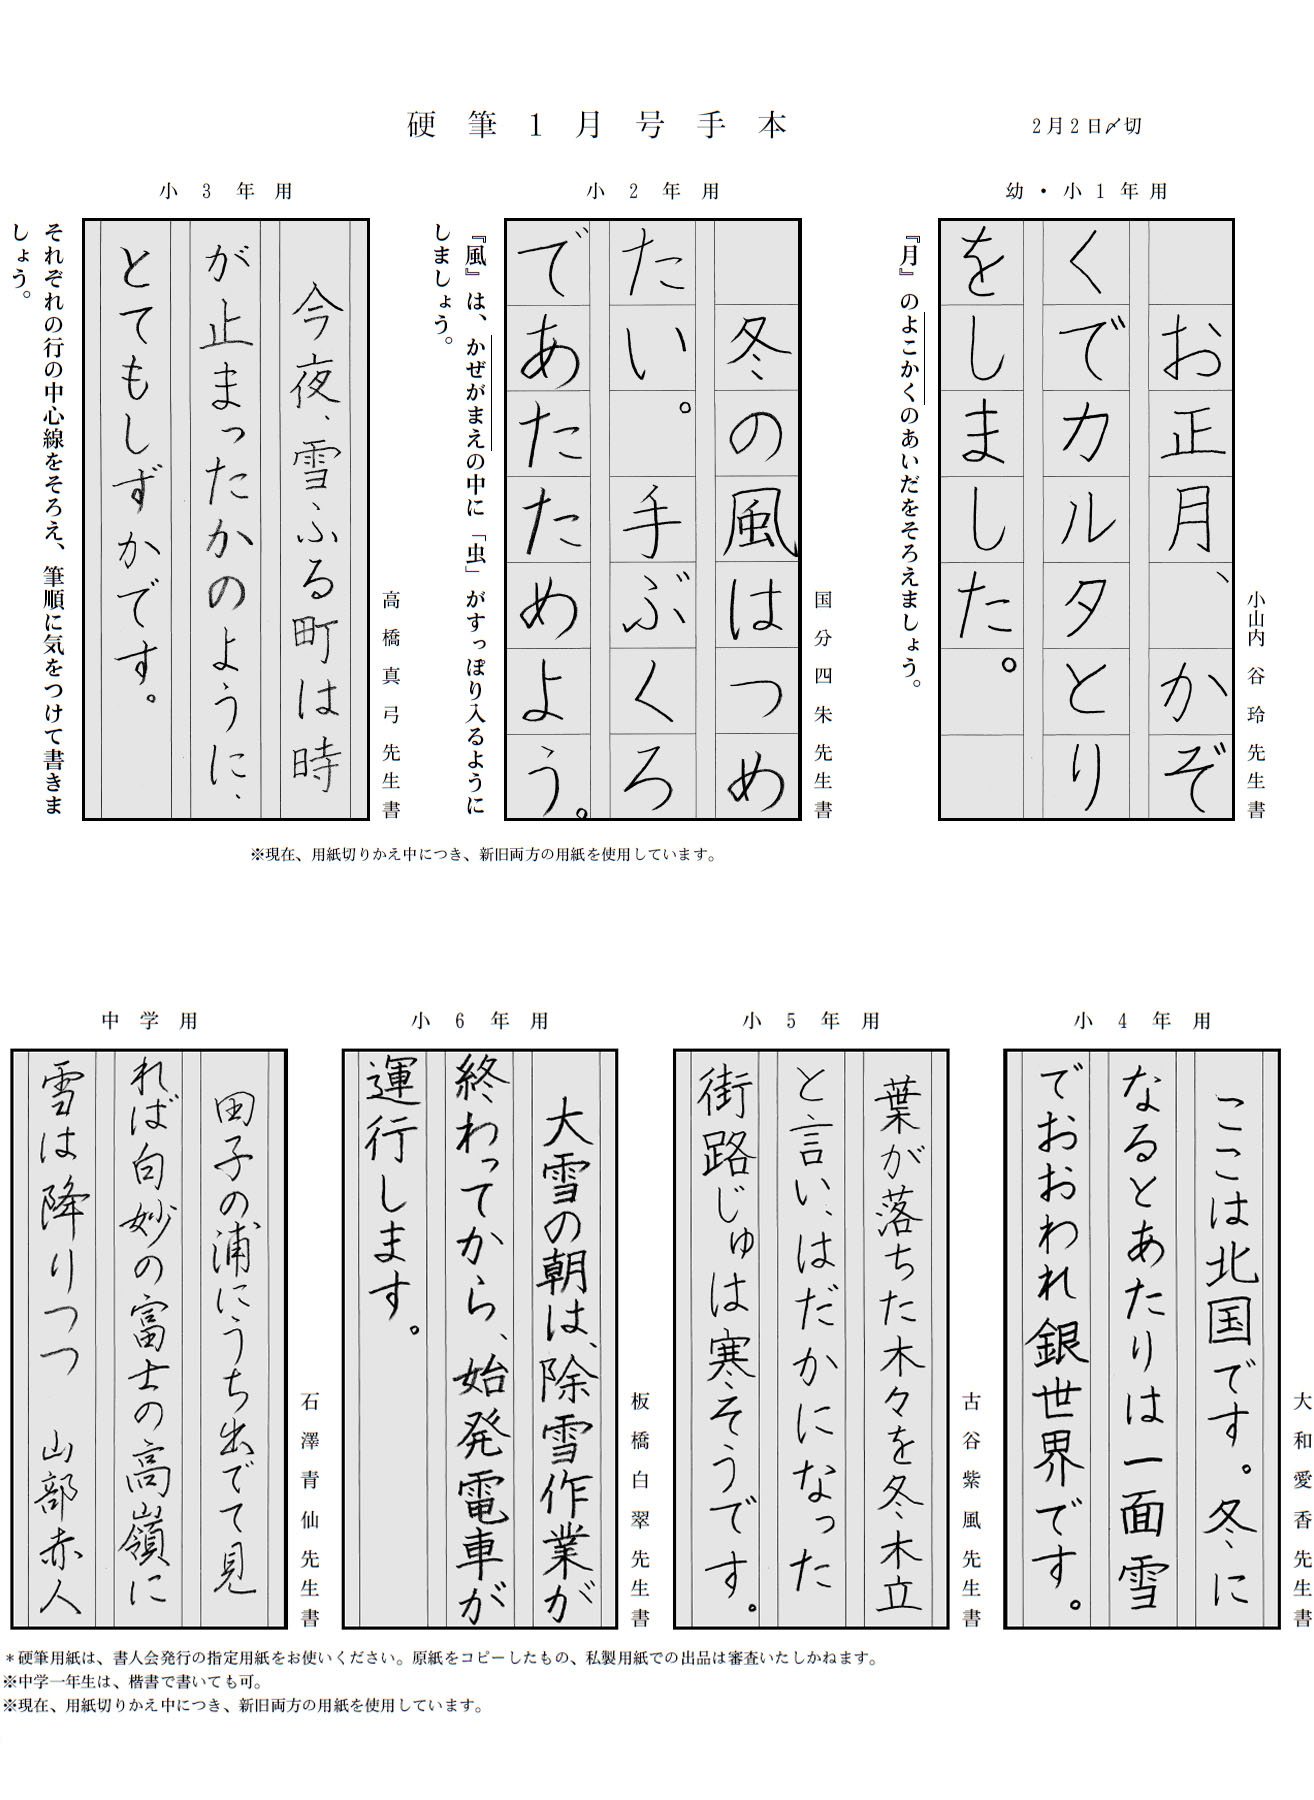 硬筆1月号手本
2月2日〆切
幼・小1年用
お正月、かぞ
くでカルタとり
をしました。
『月』のよこかくのあいだをそろえましょう。
小山内谷玲先生書
小2年用
冬の風はつめ
たい。手ぶくろ
であたためよう。
『風』は、かぜがまえの中に「虫」がすっぽり入るように
しましょう。
国分四朱先生書
小3年用
今夜、雪ふる町は時
が止まったかのように、
とてもしずかです。
それぞれの行の中心線をそろえ、筆順に気をつけて書きま
しょう。
高橋真弓先生書
※現在、用紙切りかえ中につき、新旧両方の用紙を使用しています。
小4年用
ここは北国です。冬に
なるとあたりは一面雪
でおおわれ銀世界です。
大和愛香先生書
小5年用
葉が落ちた木々を冬木立
と言い、はだかになった
街路じゅは寒そうです。
古谷紫風先生書
小6年用
大雪の朝は、除雪作業が
終わってから、始発電車が
運行します。
板橋白翠先生書
中学用
田子の浦にうち出でて見
れば白妙の富士の高嶺に
雪は降りつつ 山部赤人
石澤青仙先生書
＊硬筆用紙は、書人会発行の指定用紙をお使いください。原紙をコピーしたもの、私製用紙での出品は審査いたしかねます。
※中学一年生は、楷書で書いても可。
※現在、用紙切りかえ中につき、新旧両方の用紙を使用しています。